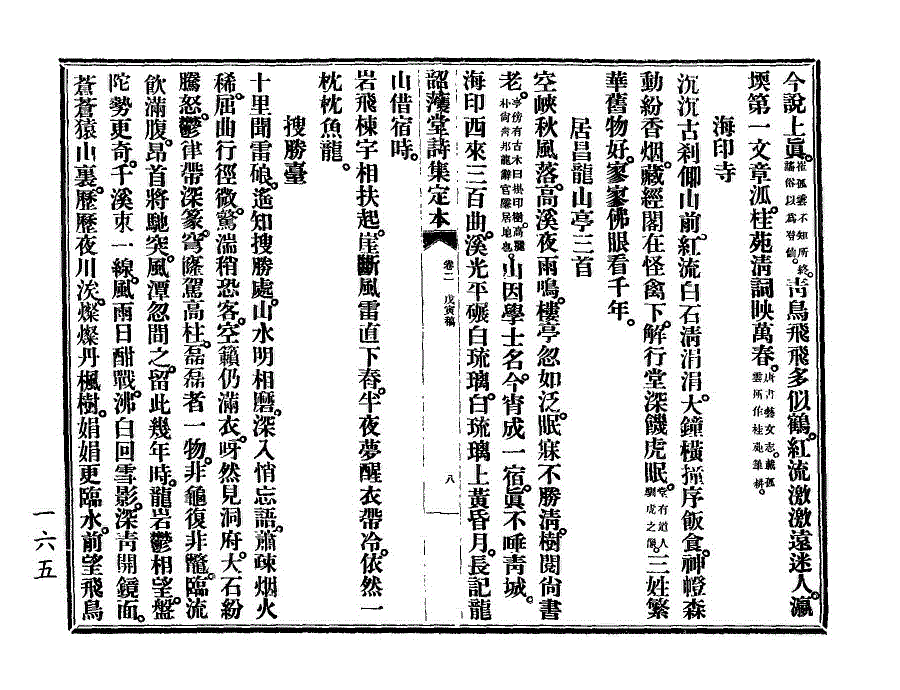 今說上眞。崔孤雲不知所終。謠俗以爲登仙。靑鳥飛飛多似鶴。紅流激激遠迷人。瀛
堧第一文章泒。桂苑淸詞映萬春。唐書藝文志。載孤雲所作桂苑筆耕。
海印寺
沉沉古刹仰山前。紅流白石淸涓涓。大鐘橫撞序飯食。神幢森
動紛香烟。藏經閣在怪禽下。解行堂深饑虎眠。堂有道人馴虎之傳。三姓繁
華舊物好。家家佛眼看千年。
居昌龍山亭三首
空峽秋風落。高溪夜雨鳴。樓亭忽如泛。眠寐不勝淸。樹閱尙書
老。亭傍有古木曰掛印樹。高麗朴尙書邦龍辭官隱居地也。山因學士名。今宵成一宿。眞不唾靑城。
海印西來三百曲。溪光平碾白琉璃。白琉璃上黃昏月。長記龍
山借宿時。
岩飛棟宇相扶起。崖斷風雷直下舂。半夜夢醒衣帶冷。依然一
枕枕魚龍。
搜勝臺
十里聞雷硠。遙知搜勝處。山水明相磨。深入悄忘語。蕭疎烟火
稀。屈曲行徑微。驚湍稍恐客。空籟仍滿衣。呀然見洞府。大石紛
騰怒。鬱律帶深篆。穹窿駕高柱。磊磊者一物。非龜復非鼈。臨流
飮滿腹。昂首將馳突。風潭忽間之。留此幾年時。龍岩鬱相望。盤
陀勢更奇。千溪束一線。風雨日酣戰。沸白回雪影。深靑開鏡面。
蒼蒼猿山裏。歷歷夜川涘。燦燦丹楓樹。娟娟更臨水。前望飛鳥
韶濩堂詩集定本 卷二 戊寅稿 八
一六五